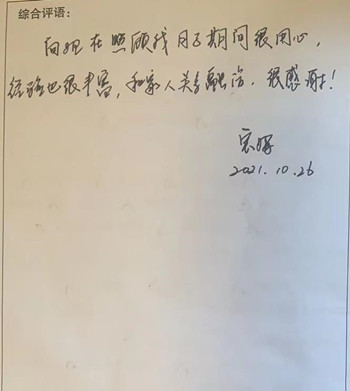 综合评语：
向姐在照顾我月子期间很用心，
经验也很丰富，和家人关系融洽，很感谢！
2021.10.26